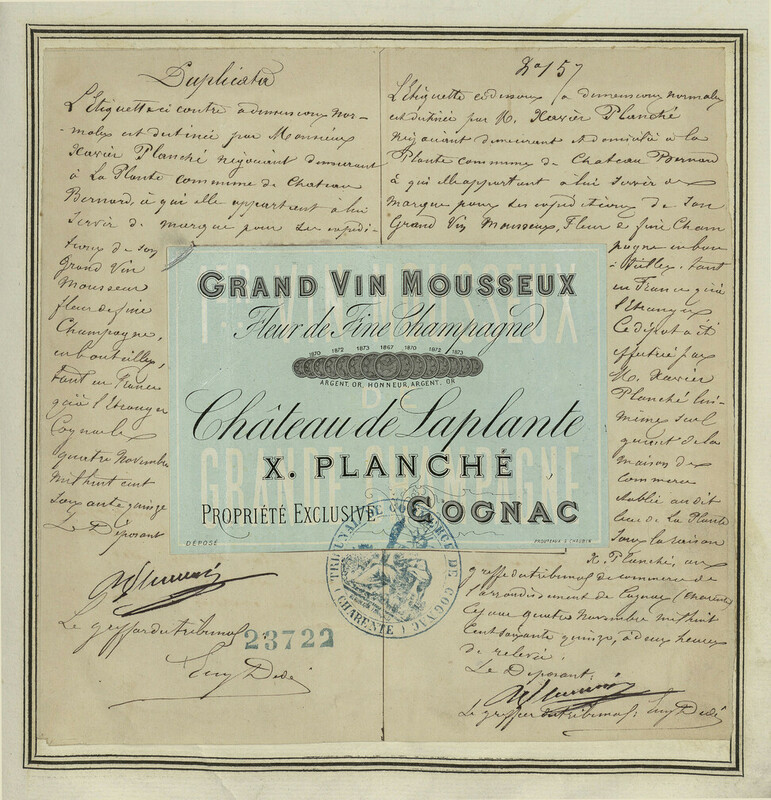 Duplicata
L'Etiquette ci contre a dimensions nor-
-males est destinée par Monsieur
Xavier Planché négociant demeurant
à La Plante commune de Chateau
Bernard, à qui elle appartient à lui
servir de marque pour ses expédi-
tions de son
Grand Vin
Mousseux
fleur de fine
Champagne,
en bouteilles,
tant en France
qu'à l'Etranger
Cognac le
quatre Novembre
mil huit cent
soixante quinze
Le Déposant
Le greffier du tribunal
23722
No 157
L'Etiquette ci dessous (a dimensions normales
est destinée par M. Xavier Planché
négociant demeurant et domicilié à la
Plante commune de Chateau Bernard
à qui elle appartient à lui servir de
marque pour ses expéditions de son
Grand Vin Mousseux, Fleur de fine Cham
pagne en bou
teilles, tant
en France qu'à
l'Etranger
Ce dépôt a été
effectué par
M. Xavier
Planché lui-
même seul
gérant de la
maison de
commerce
établie au dit
lieu de La Plante
sous la raison
X. Planché, au
greffe du tribunal de commerce de
l'arrondissement de Cognac (Charente)
Ce jour quatre Novembre mil huit
Cent soixante quinze, à deux heures
de relevée.
Le Déposant:
Le greffier du tribunal:
GRAND VIN MOUSSEUX
Fleur de Fine Champagne
1870 1872 1873 1867 1870 1872 1873
ARGENT, OR, HONNEUR, ARGENT, OR
Château de Laplante
X. PLANCHÉ
PROPRIÉTÉ EXCLUSIVE COGNAC
DÉPOSÉ
VIN MOUSSEUX
DE
GRANDE CHAMPAGNE
TRIBUNAL DE COMMERCE DE COGNAC
(CHARENTE)